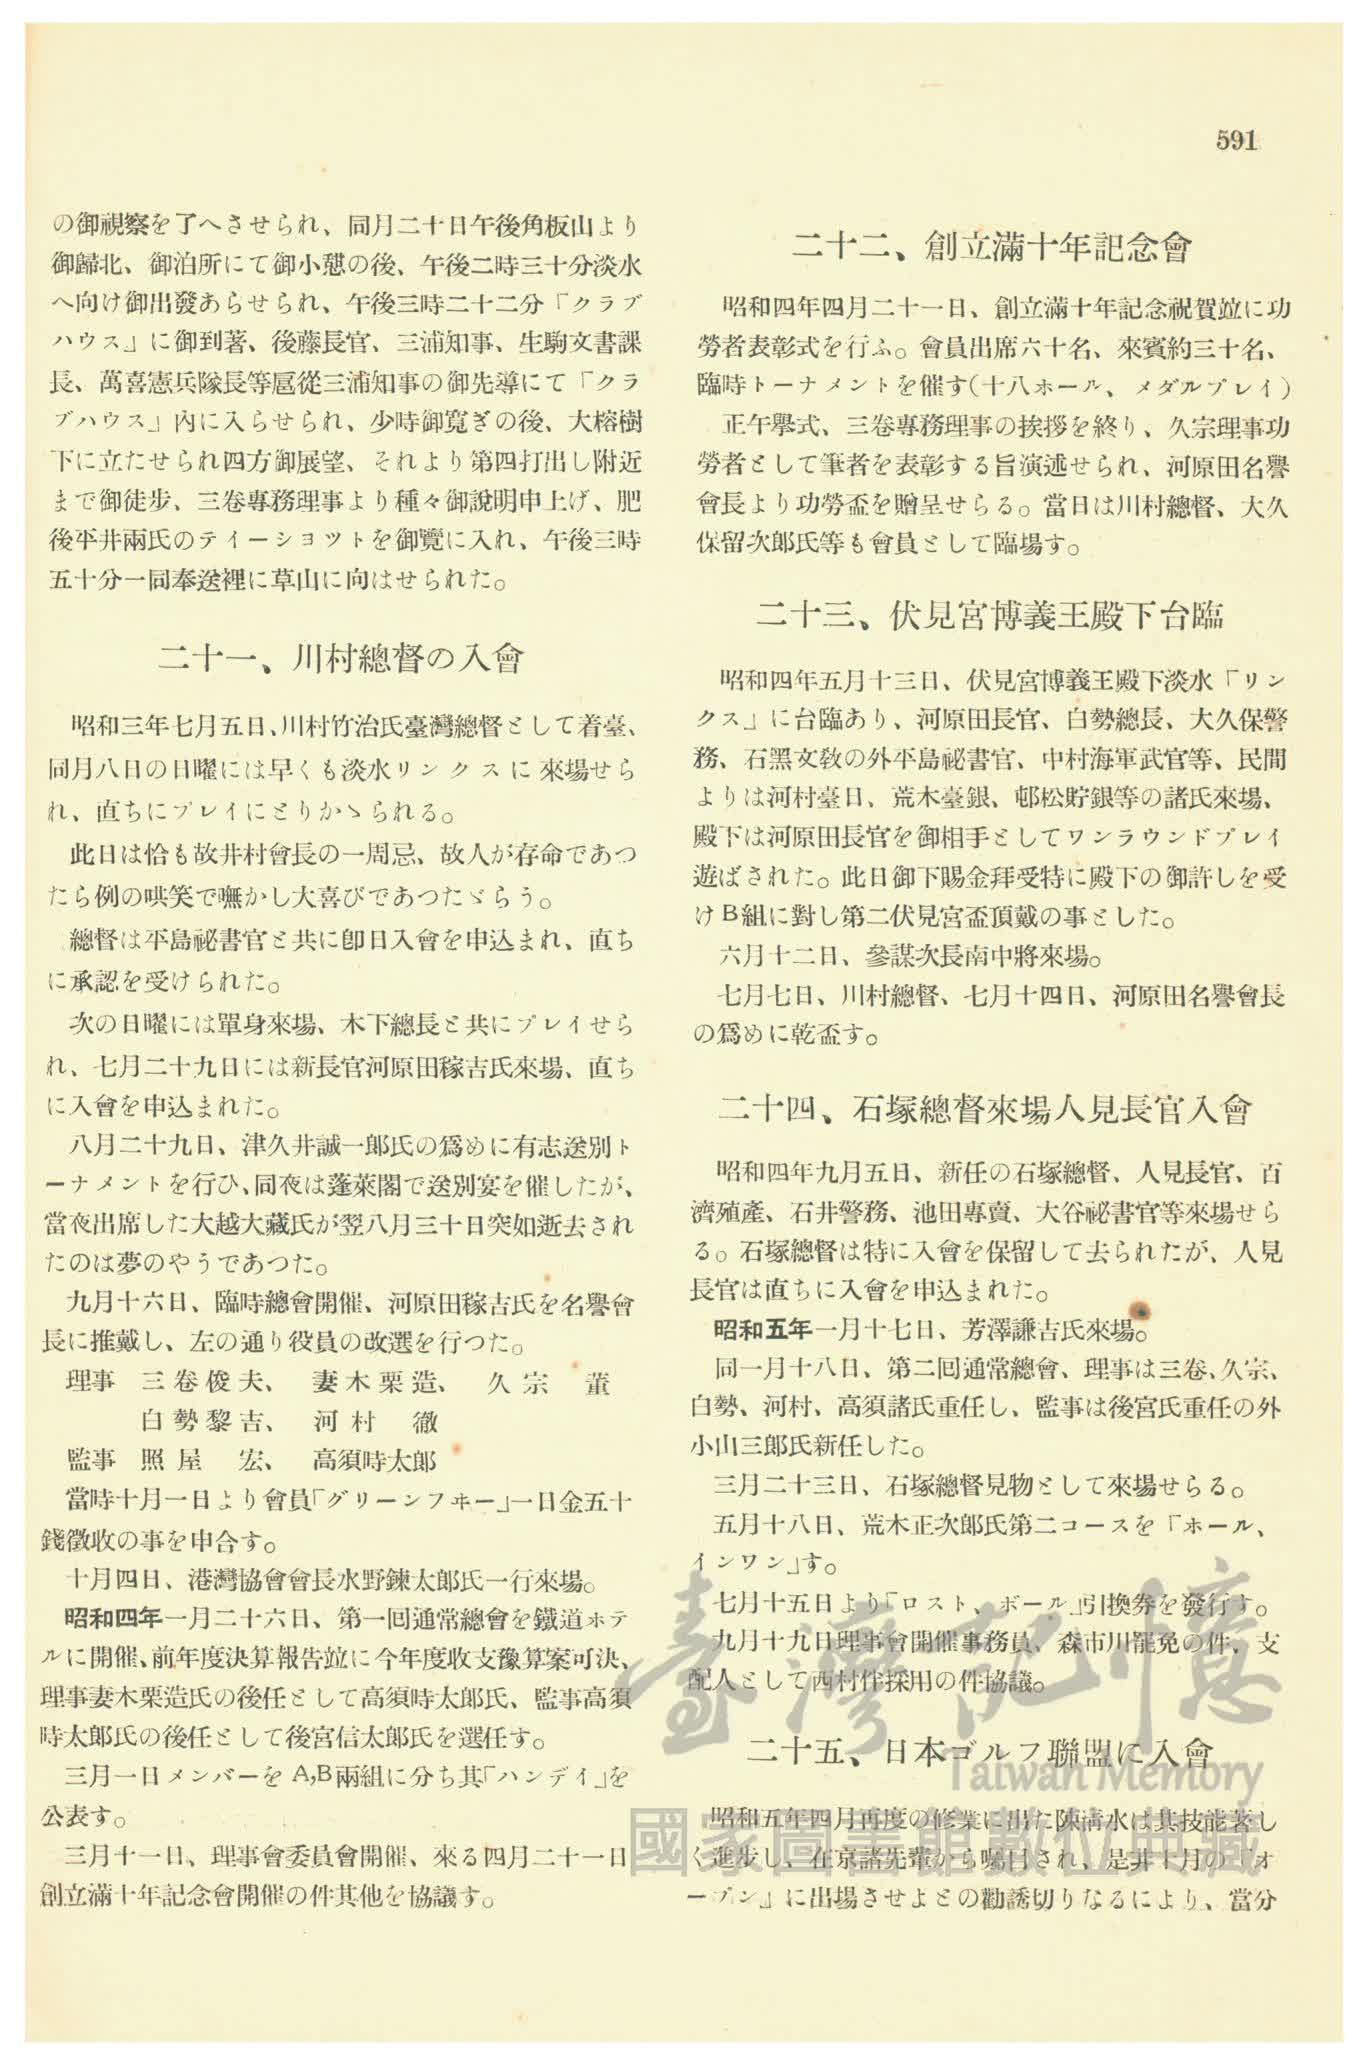 591
の御視察を了へさせられ、同月二十日午後角板山より
御歸北、御泊所にて御小憩の後、午後二時三十分淡水
へ向け御出發あらせられ、午後三時二十二分「クラブ
ハウス」に御到著、後藤長官、三浦知事、生駒文書課
長、萬喜憲兵隊長等扈從三浦知事の御先導にて「クラ
ブハウス」內に入らせられ、少時御寬ぎの後、大榕樹
下に立たせられ四方御展望、それより第四打出し附近
まで御徒步、三卷專務理事より種々御說明申上げ、肥
後平井兩氏のテイーショツトを御覽に入れ、午後三時
五十分一同奉送裡に草山に向はせられた。
二十一、川村總督の入會
昭和三年七月五日、川村竹治氏臺灣總督として着臺、
同月八日の日曜には早くも淡水リンクスに來場せら
れ、直ちにプレイにとりかゝられる。
此日は恰も故井村會長の一周忌、故人が存命であつ
たら例の哄笑で嘸かし大喜びであつたゞらう。
總督は平島祕書官と共に卽日入會を申込まれ、直ち
に承認を受けられた。
次の日曜には單身來場、木下總長と共にプレイせら
れ、七月二十九日には新長官河原田稼吉氏來場、直ち
に入會を申込まれた。
八月二十九日、津久井誠一郎氏の爲めに有志送別ト
ーナメントを行ひ、同夜は蓬萊閣で送別宴を催したが、
當夜出席した大越大藏氏が翌八月三十日突如逝去され
たのは夢のやうであつた。
九月十六日、臨時總會開催、河原田稼吉氏を名譽會
長に推戴し、左の通り役員の改選を行つた。
理事　三卷俊夫、　妻木栗造、　久宗　董
白勢黎吉、　河村　徹
監事　照屋　宏、　高須時太郎
當時十月一日より會員「グリーンフヰー」一日金五十
錢徵收の事を申合す。
十月四日、港灣協會會長水野鍊太郎氏一行來場。
昭和四年一月二十六日、第一回通常總會を鐵道ホテ
ルに開催、前年度決算報告竝に今年度收支豫算案可決、
理事妻木栗造氏の後任として高須時太郎氏、監事高須
時太郎氏の後任として後宮信太郎氏を選任す。
三月一日メンバーを A,B兩組に分ち其「ハンデイ」を
公表す。
三月十一日、理事會委員會開催、來る四月二十一日
創立滿十年記念會開催の件其他を協議す。
二十二、創立滿十年記念會
昭和四年四月二十一日、創立滿十年記念祝賀竝に功
勞者表彰式を行ふ。會員出席六十名、來賓約三十名、
臨時トーナメントを催す(十八ホール、メダルプレイ)
正午擧式、三卷專務理事の挨拶を終り、久宗理事功
勞者として筆者を表彰する旨演述せられ、河原田名譽
會長より功勞盃を贈呈せらる。當日は川村總督、大久
保留次郎氏等も會員として臨場す。
二十三、伏見宮博義王殿下台臨
昭和四年五月十三日、伏見宮博義王殿下淡水「リン
クス」に台臨あり、河原田長官、白勢總長、大久保警
務、石黑文敎の外平島祕書官、中村海軍武官等、民間
よりは河村臺日、荒木臺銀、邨松貯銀等の諸氏來場、
殿下は河原田長官を御相手としてワンラウンドプレイ
遊ばされた。此日御下賜金拜受特に殿下の御許しを受
けB組に對し第二伏見宮盃頂戴の事とした。
六月十二日、參謀次長南中將來場。
七月七日、川村總督、七月十四日、河原田名譽會長
の爲めに乾盃す。
二十四、石塚總督來場人見長官入會
昭和四年九月五日、新任の石塚總督、人見長官、百
濟殖產、石井警務、池田專賣、大谷祕書官等來場せら
る。石塚總督は特に入會を保留して去られたが、人見
長官は直ちに入會を申込まれた。
昭和五年一月十七日、芳澤謙吉氏來場。
同一月十八日、第二回通常總會、理事は三卷、久宗、
白勢、河村、高須諸氏重任し、監事は後宮氏重任の外
小山三郎氏新任した。
三月二十三日、石塚總督見物として來場せらる。
五月十八日、荒木正次郎氏第二コースを「ホール、
インワン」す。
七月十五日より「ロスト、ボール」引換券を發行す。
九月十九日理事會開催事務員、森市川罷免の件、支
配人として西村伴採用の件協議。
二十五、日本ゴルフ聯盟に入會
昭和五年四月再度の修業に出た陳淸水は其技能著し
く進步し、在京諸先輩から囑目され、是非十月の「オ
ープン」に出場させよとの勸誘切りなるにより、當分
臺灣記憶
Taiwan Memory
國家圖書館數位典藏